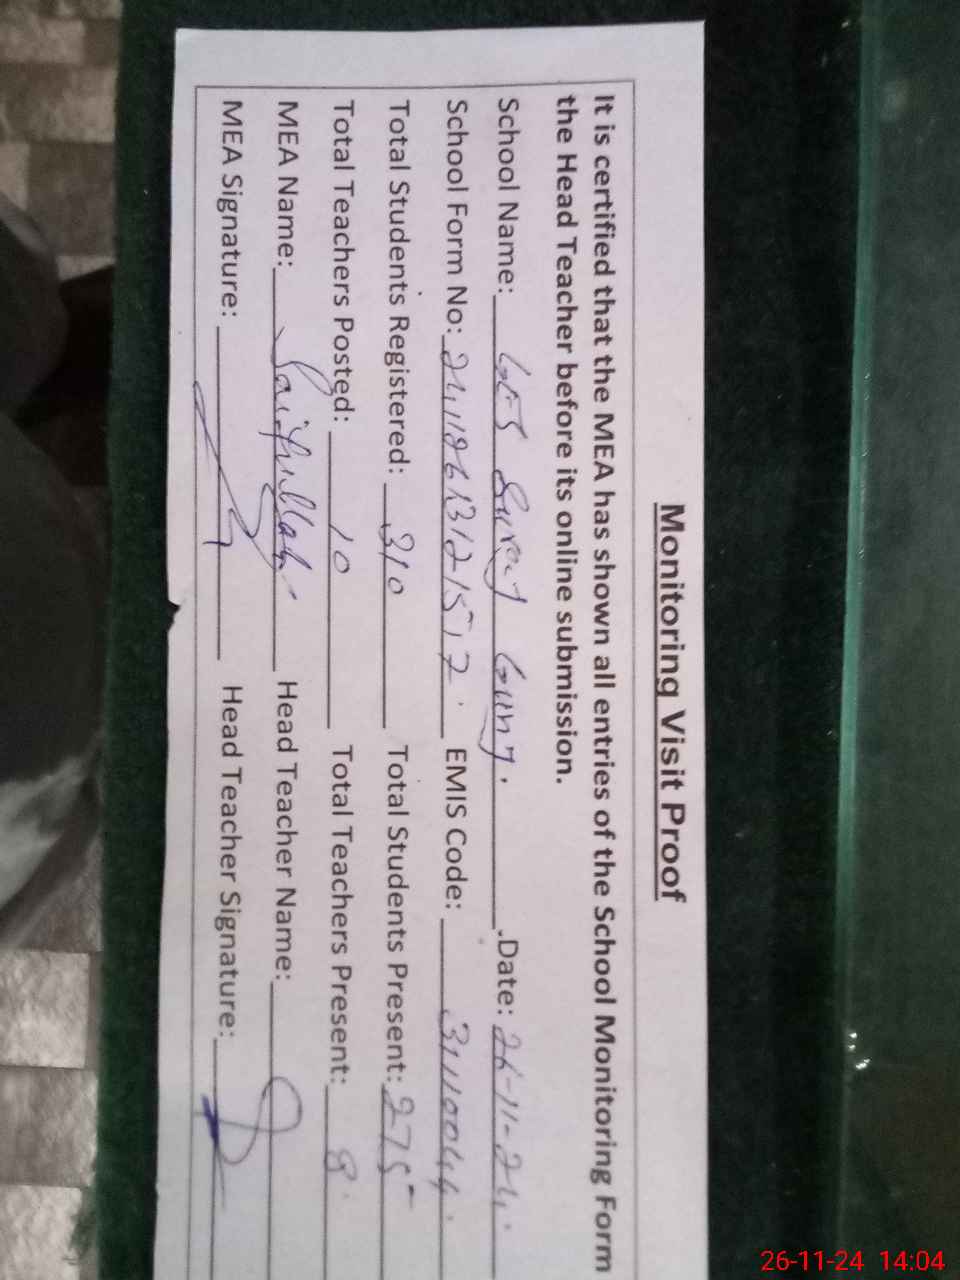 Monitoring Visit Proof
It is certified that the MEA has shown all entries of the School Monitoring Form
the Head Teacher before its online submission.
School Name: Date: 26-11-24
School Form No: EMIS Code: 31110044
Total Students Registered: 310 Total Students Present: 275
Total Teachers Posted: 10 Total Teachers Present: 8
MEA Name: Saifullah Head Teacher Name:
MEA Signature: Head Teacher Signature:
26-11-24 14:04